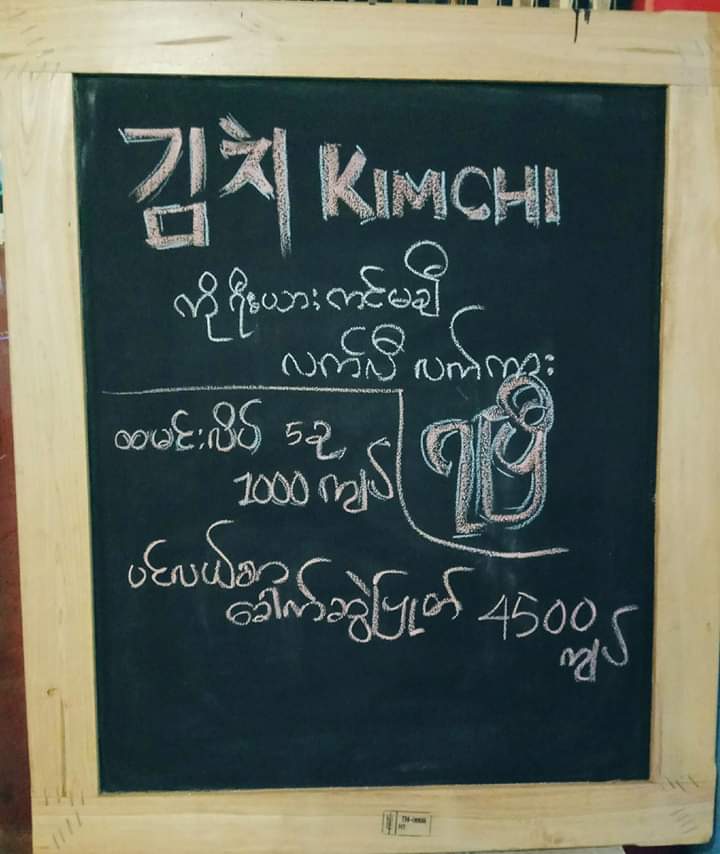 김치 KIMCHI
ကိုရီးယားကင်မချီ
လက်လီ လက်ကား
ရပြီ
ထမင်းလိပ် 5ခု
1000 ကျပ်
ပင်လယ်စာ
ခေါက်ဆွဲပြုတ် 4500
ကျပ်